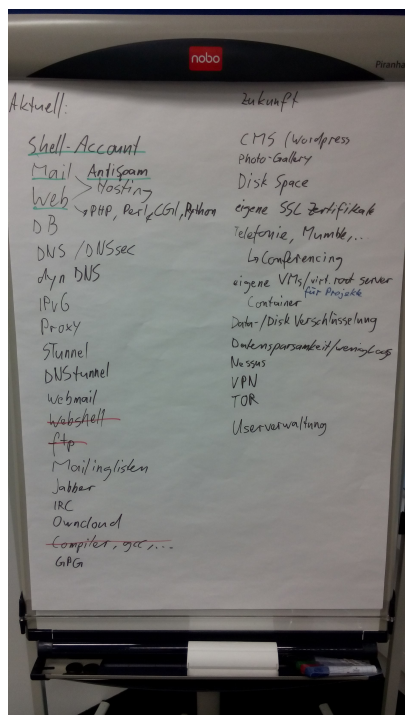 nobo
Piranha
Aktuell:
Shell-Account
Mail Antispam
Web Hosting
PHP, Perl, CGI, Python
DB
DNS / DNSsec
dyn DNS
IPv6
Proxy
STunnel
DNStunnel
Webmail
Webshell
ftp
Mailinglisten
Jabber
IRC
Owncloud
Compiler, gcc, ...
GPG
Zukunft
CMS (Wordpress
Photo-Gallery
Disk Space
eigene SSL Zertifikate
Telefonie, Mumble, ..
Conferencing
eigene VMs/virt. root server
für Projekte
Container
Data-/Disk Verschlüsselung
Datensparsamkeit/wenig Logs
Nessus
VPN
TOR
Userverwaltung